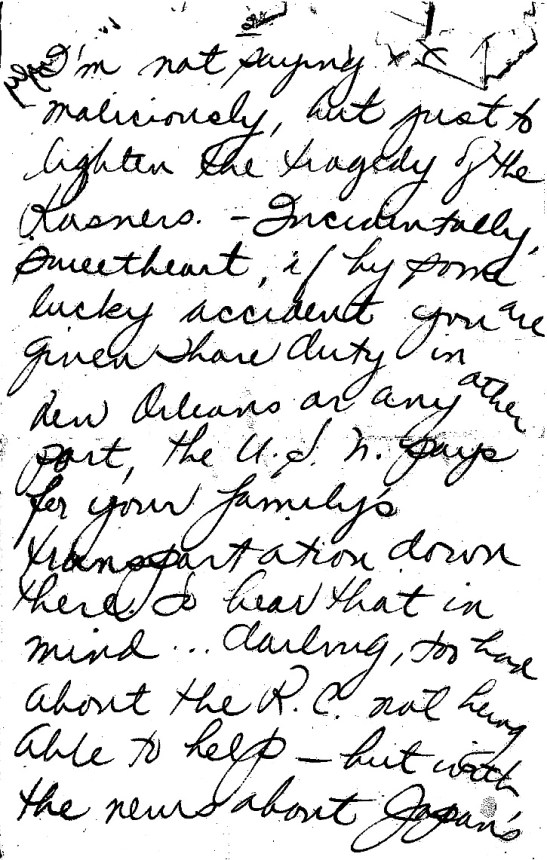 I'm not saying xx
maliciously, but just to
lighten the tragedy of the
Kasners. - Incidentally,
sweetheart, if by some
lucky accident you are
given shore duty in
New Orleans or any other
port, the U.S.N. pays
for your family's
transportation down
there. So bear that in
mind ... darling, too bad
about the R.C. not being
able to help - but with
the news about Japan's